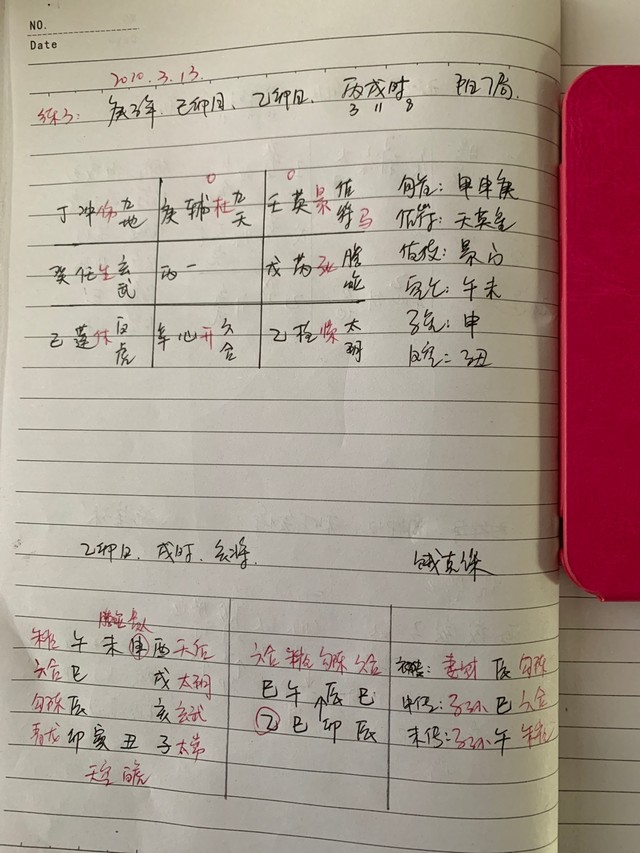 NO.
Date
2020.3.13.
练3: 庚子年、己卯月、乙卯日、丙戌时 阳7局
3 11 8
丁冲伤九地 庚辅杜九天 壬英景值符马
0 0
癸任生玄武 丙一 戊芮死腾蛇
己蓬休白虎 辛心开六合 乙柱惊太阴
旬首: 甲申庚
值符: 天英星
值使: 景门
空亡: 午未
孤虚: 申
乙卯日、戌时、亥将
腾蛇 贵人
朱雀 午 未 申 酉 天后
六合 巳 戌 太阴
勾陈 辰 亥 玄武
青龙 卯 寅 丑 子 太常
天空 白虎
六合 朱雀 勾陈 六合
巳 午 辰 巳
乙 巳 卯 辰
初传: 妻财 辰 勾陈
中传: 子孙 巳 六合
末传: 子孙 午 朱雀